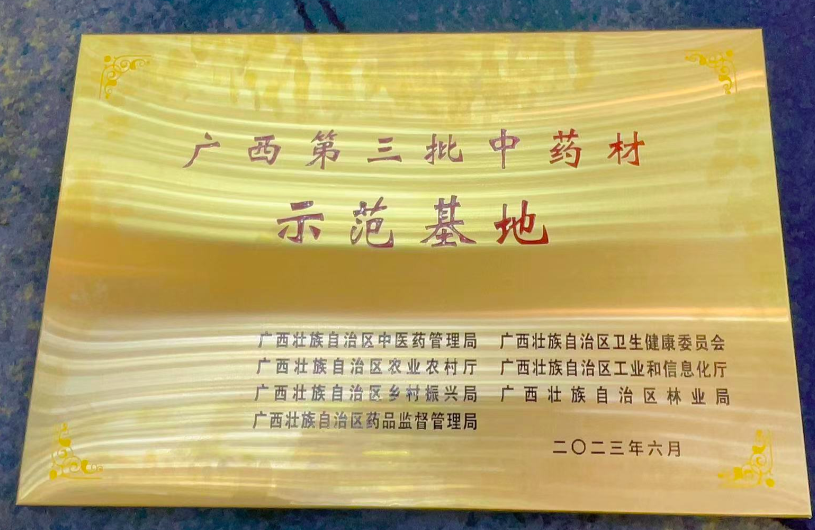 广西第三批中药材
示范基地
广西壮族自治区中医药管理局 广西壮族自治区卫生健康委员会
广西壮族自治区农业农村厅 广西壮族自治区工业和信息化厅
广西壮族自治区乡村振兴局 广西壮族自治区林业局
广西壮族自治区药品监督管理局
二〇二三年六月